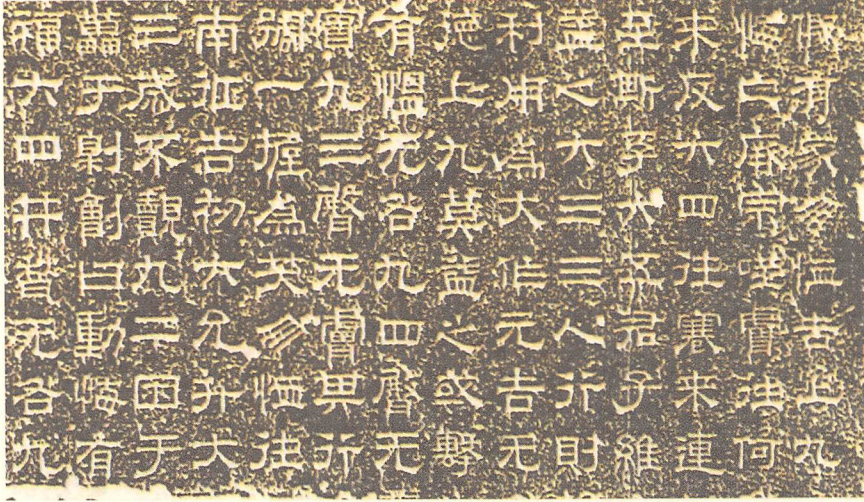 假有家勿恤吉上九
悔亡厥宗噬膚往何
来反六四往蹇来連
至斯孚六五君子維
益之六三三人行則
利用為大作元吉无
德上九莫益之或擊
有慍无咎九四臀无
賓九三臀无膚其行
號一握為笑勿恤往
南征吉初六允升大
三歲不覿九二困于
藟于劓劊曰動悔有
福六四井甃无咎九